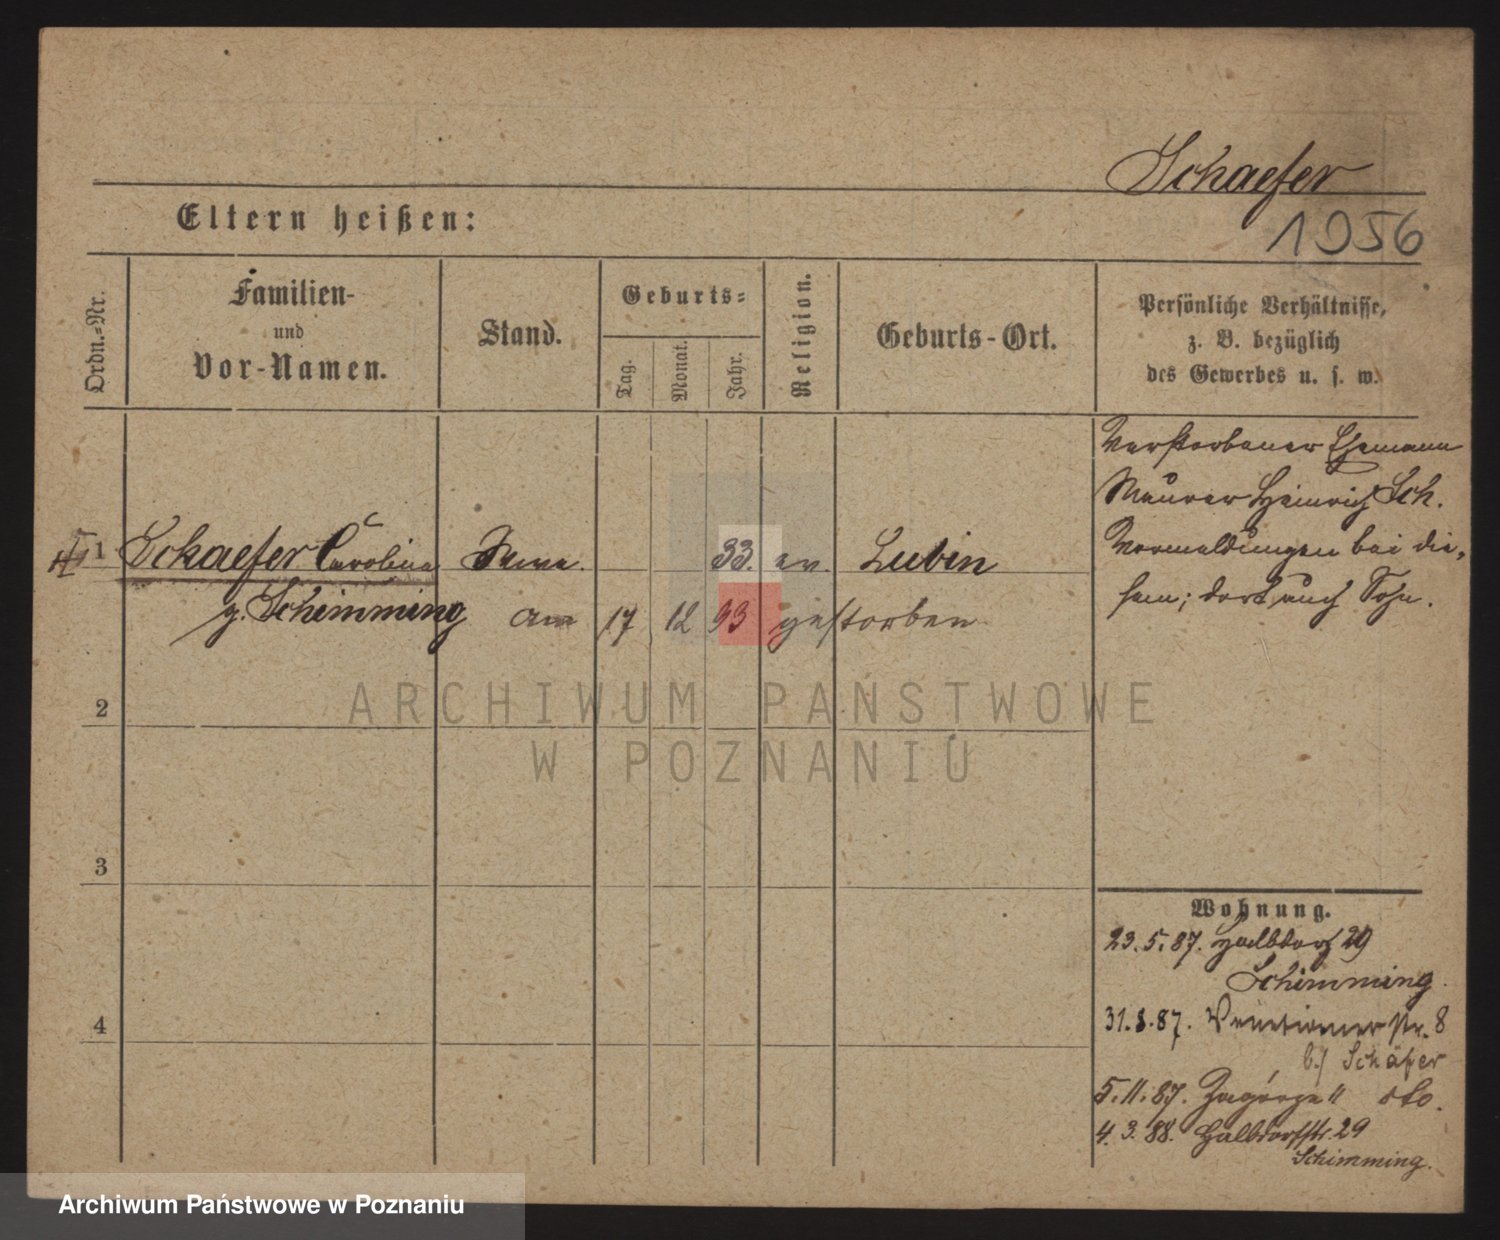 Schaefer
1956
Eltern heißen:
Ordn.-Nr.
Familien-
und
Vor-Namen.
Stand.
Geburts-
Tag.
Monat.
Jahr.
Religion.
Geburts-Ort.
Persönliche Verhältnisse,
z. B. bezüglich
des Gewerbes u. s. w.
Verstorbener Ehemann
Maurer Heinrich Sch.
Vormeldungen bei die-
sem; dort auch Sohn.
1 Schaefer Caroline 33. ev. Lubin
g. Schimming am 17 12 93 gestorben
2
3
4
Wohnung.
23.5.87. Halbdorf 29
Schimming.
31.8.87. Venetianerstr. 8
b/ Schäfer
5.11.87. Zagórze 11 dto.
4.3.88. Halbdorfstr. 29
Schimming.
ARCHIWUM PAŃSTWOWE
W POZNANIU
Archiwum Państwowe w Poznaniu